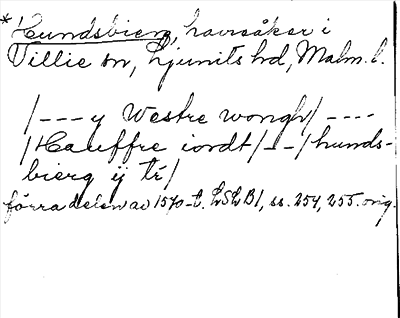 *Hundsbierg, havreåker i
Villie sn, Ljunits hd, Malm. l.
/---y Westre wongh/----
/Hauffre iordt/--/hunds-
bierg ij tr/
förra delen av 1570-t. LSLB1, ss. 254, 255. orig.